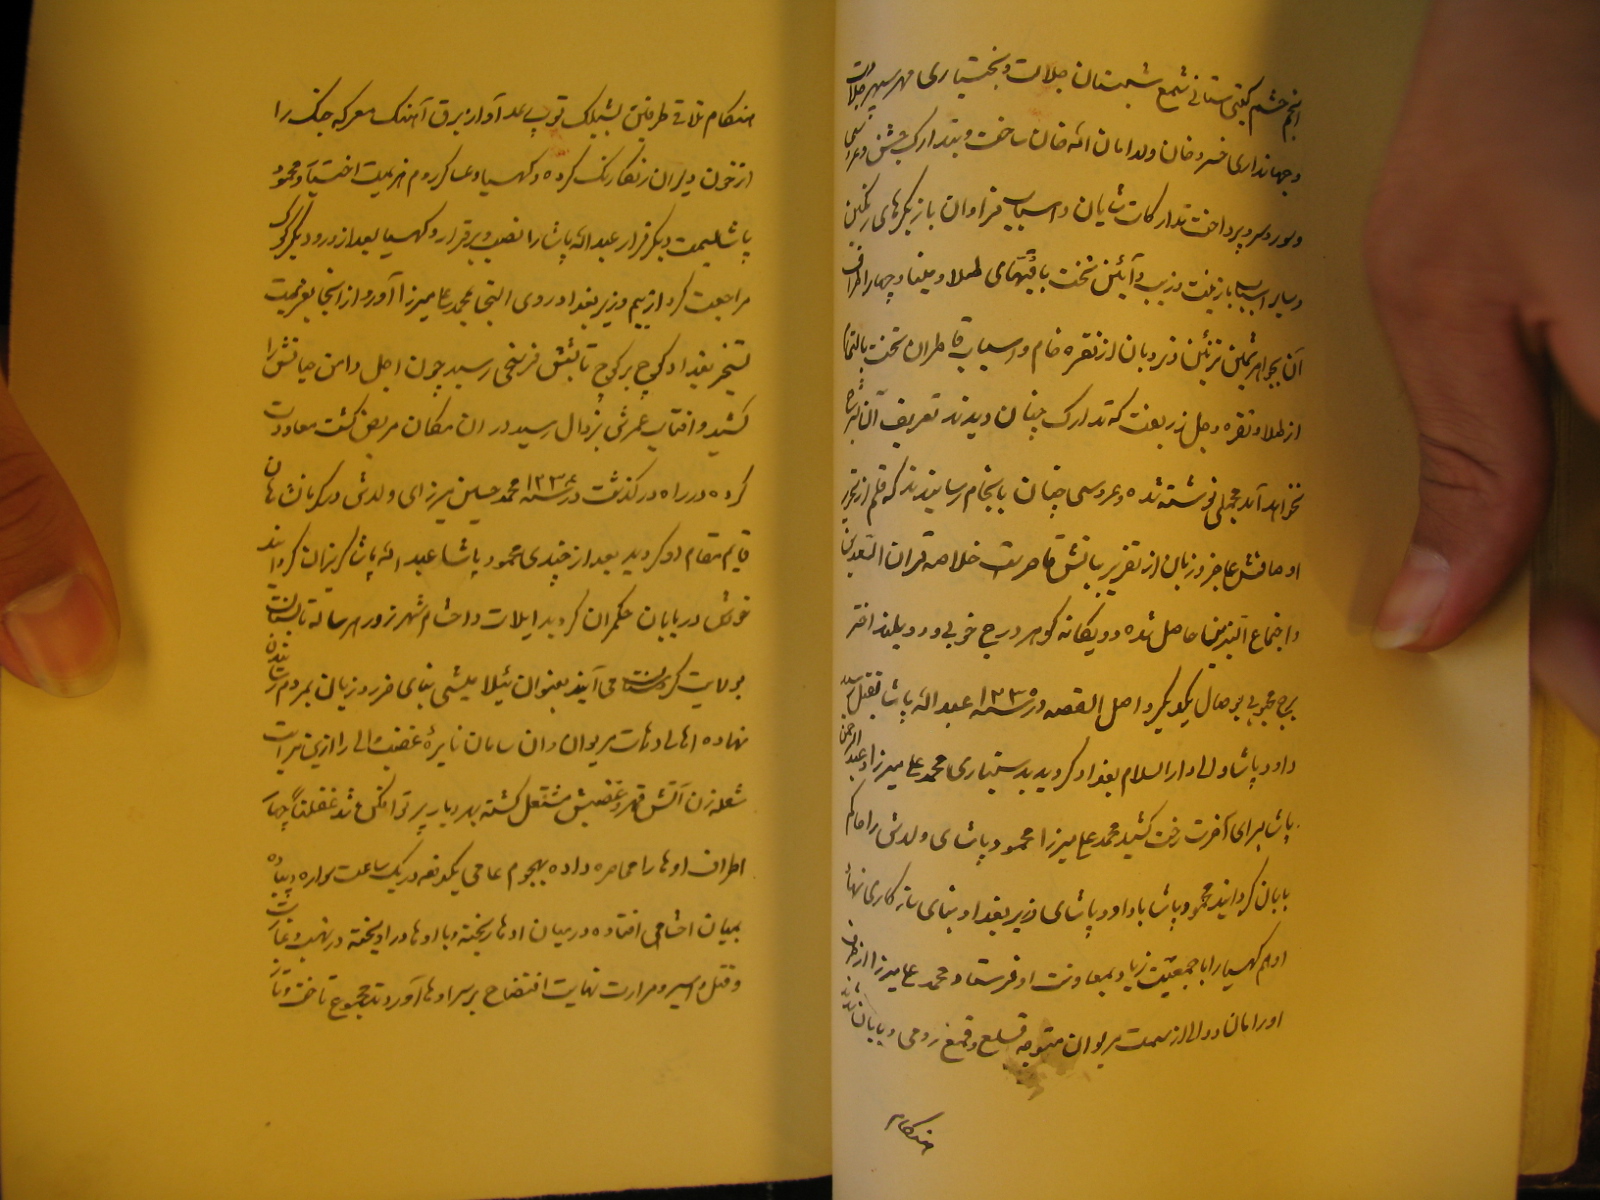 انجم حشم گیتی ستانی شمع شبستان جلالت و بختیاری مهر سپهر جلالت
و جهانداری خسرو خان ولد امان الله خان ساخت و بتدارک جشن و عروسی
و سور و سرور پرداخت تدارکات شایان و اسباب فراوان با زیکرهای رنگین
و سایر اسباب با زینت و زیب و آئین تخت با قبهای طلا و مینا و چهار اطراف
آن بجواهر ثمین تزئین و نردبان از نقره خام و اسباب قاطران تخت بالتمام
از طلا و نقره و جل زربفت که تدارک چنان دیدند تعریف آنان
نخواهد آمد مجملی نوشته شده و عروسی چنان بانجام رسانیدند که قلم از تحریر
اوصافش عاجز و زبان از تقریر بیانش قاصر است خلاصه قران السعدین
و اجتماع النیرین حاصل شده دو یگانه گوهر درج خوبی و دو بلند اختر
برج محبوبی بوصال یکدیگر واصل القصه در سنه ۱۲۳۵ عبد الله پاشا بقتل رسید
داود پاشا والی دار السلام بغداد گردید بدستیاری محمد علی میرزا و عبد الرحمن
پاشا برای آخرت رخت کشید محمد علی میرزا محمود پاشای ولدش را حاکم
بابان گردانید محمود پاشا با داود پاشای وزیر بغداد بنای سازکاری نهاد
او هم کهیا را با جمعیت زیاد بمعاونت او فرستاد محمد علی میرزا از طرف
اورامان و والی از سمت مریوان متوجه قلع و قمع رومی و بابان شدند
هنگام
هنگام تلاقی طرفین بشلیک توپ رعد آواز برق آهنگ معرکه جنگ را
از خون دلیران زنگارنگ کرده و کهیا و عساکر روم هزیمت اختیار و محمود
پاشا بسمت دیگر فرار عبد الله پاشا را نصب و برقرار و کهیا بعد از ورود بکرکوک
مراجعت کرد از بیم وزیر بغداد روی التجا بمحمد علی میرزا آورد و از آنجا بعزیمت
تسخیر بغداد کوچ بر کوچ تا شش فرسخی رسید چون اجل دامن حیاتش را
کشید و افتاب عمرش بزوال رسید در ان مکان مریض گشت معاودت
کرده در راه درگذشت در سنه ۱۲۳۶ محمد حسین میرزای ولدش در کرمانشاهان
قایم مقام او گردید بعد از چندی محمود پاشا عبد الله پاشا گریزان گردانید
خودش در بابان حکمران گردید ایلات و احشام شهرزور هر ساله تابستان
بولایت کردستان می آیند بعنوان ئیلامیشی بنای ضرر و زیان بمردم رسانیدن
نهاده اهالی دهات مریوان و ان سامان نایره غضب والی را ازین مراتب
شعله زن آتش قهر و غضبش مشتعل گشته بهر دیار پرتو افکن شد غفلتا چهار
اطراف اوها را محاصره داده بهجوم عامی یکدفعه در یک ساعت سواره و پیاده
بمیان احشامی افتاده در میان اوها ریخته و با اوها در اویخته در نهب و غارت
و قتل و اسیر و مرارت نهایت افتضاح بر سر اوها آوردند مجموع تاخت و تاز